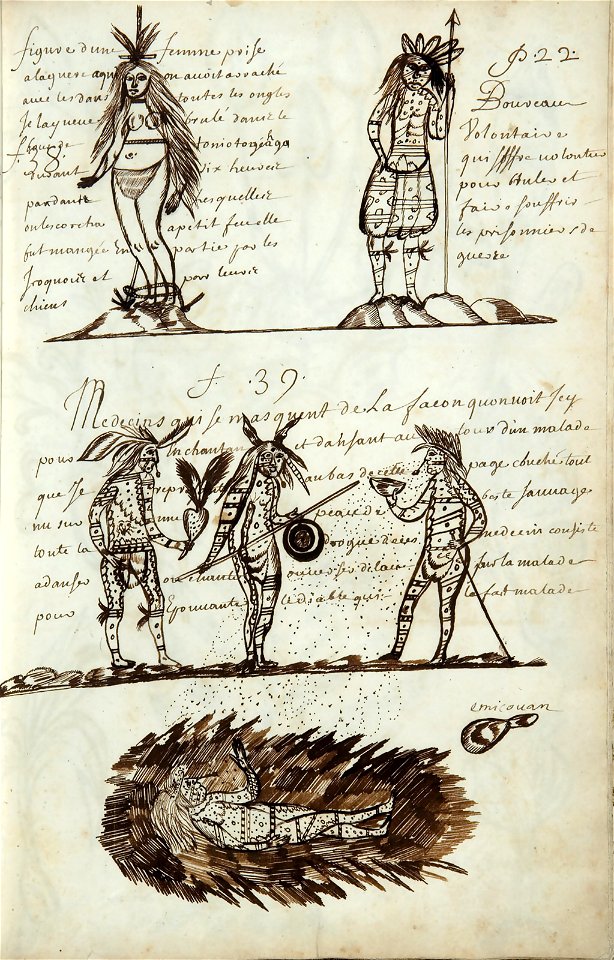 figure dune femme prise
a laguere a qui on avoit arraché
avec les dans toutes les ongles
Je lay veue brulé dans le
f. 38.
toniotogéhaga
pandant six heures
pandant lesquelles
on lescorcha a petit feu elle
fut mangée En partie par les
Iroquois et par leurs
chiens
P. 22.
Bourreau
Volontaire
qui soffre volontier
pour bruler et
faire souffrir
les prisonniers de
guerre
f. 39.
Medecins qui se masquent de La façon quon voit Icy
pour Enchantant et dansant autour dun malade
que Je represente au bas de cette page couché tout
nu sur une peaux de beste sauvage
toute la drogue de ces medecin consiste
a danser ou chanter sur la malade
pour Epouuanter le diable qui le fait malade
emicouan